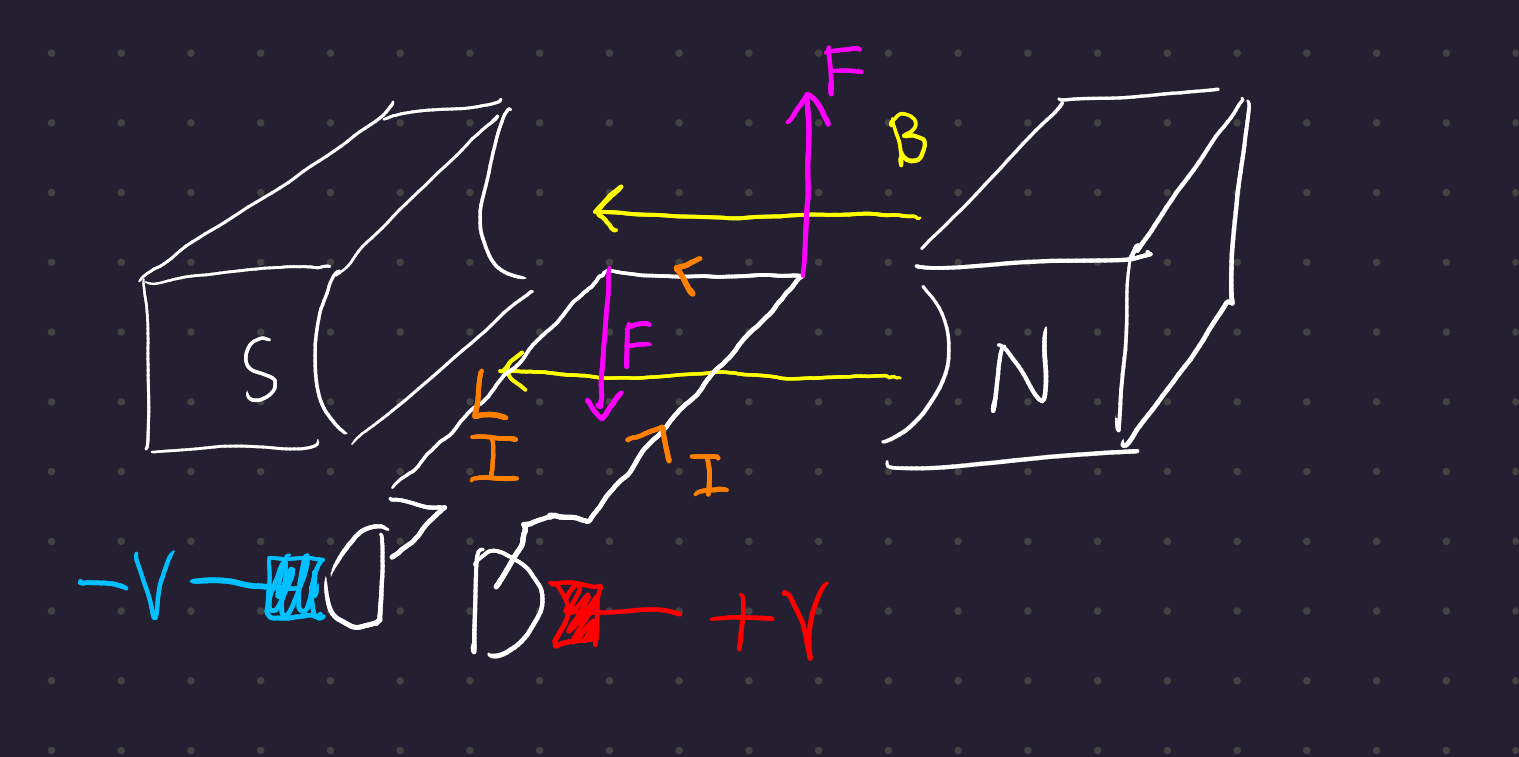 F
B
S
F
N
I
I
-V
+V